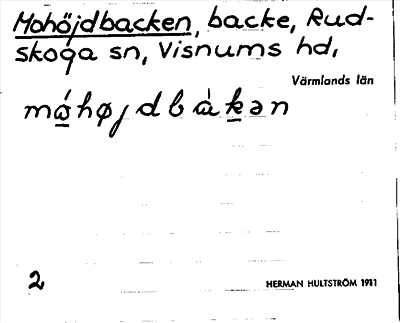 Mohöjdbacken, backe, Rud-
skoga sn, Visnums hd,
Värmlands län
mώhøjdbὼkən
2
HERMAN HULTSTRÖM 1911